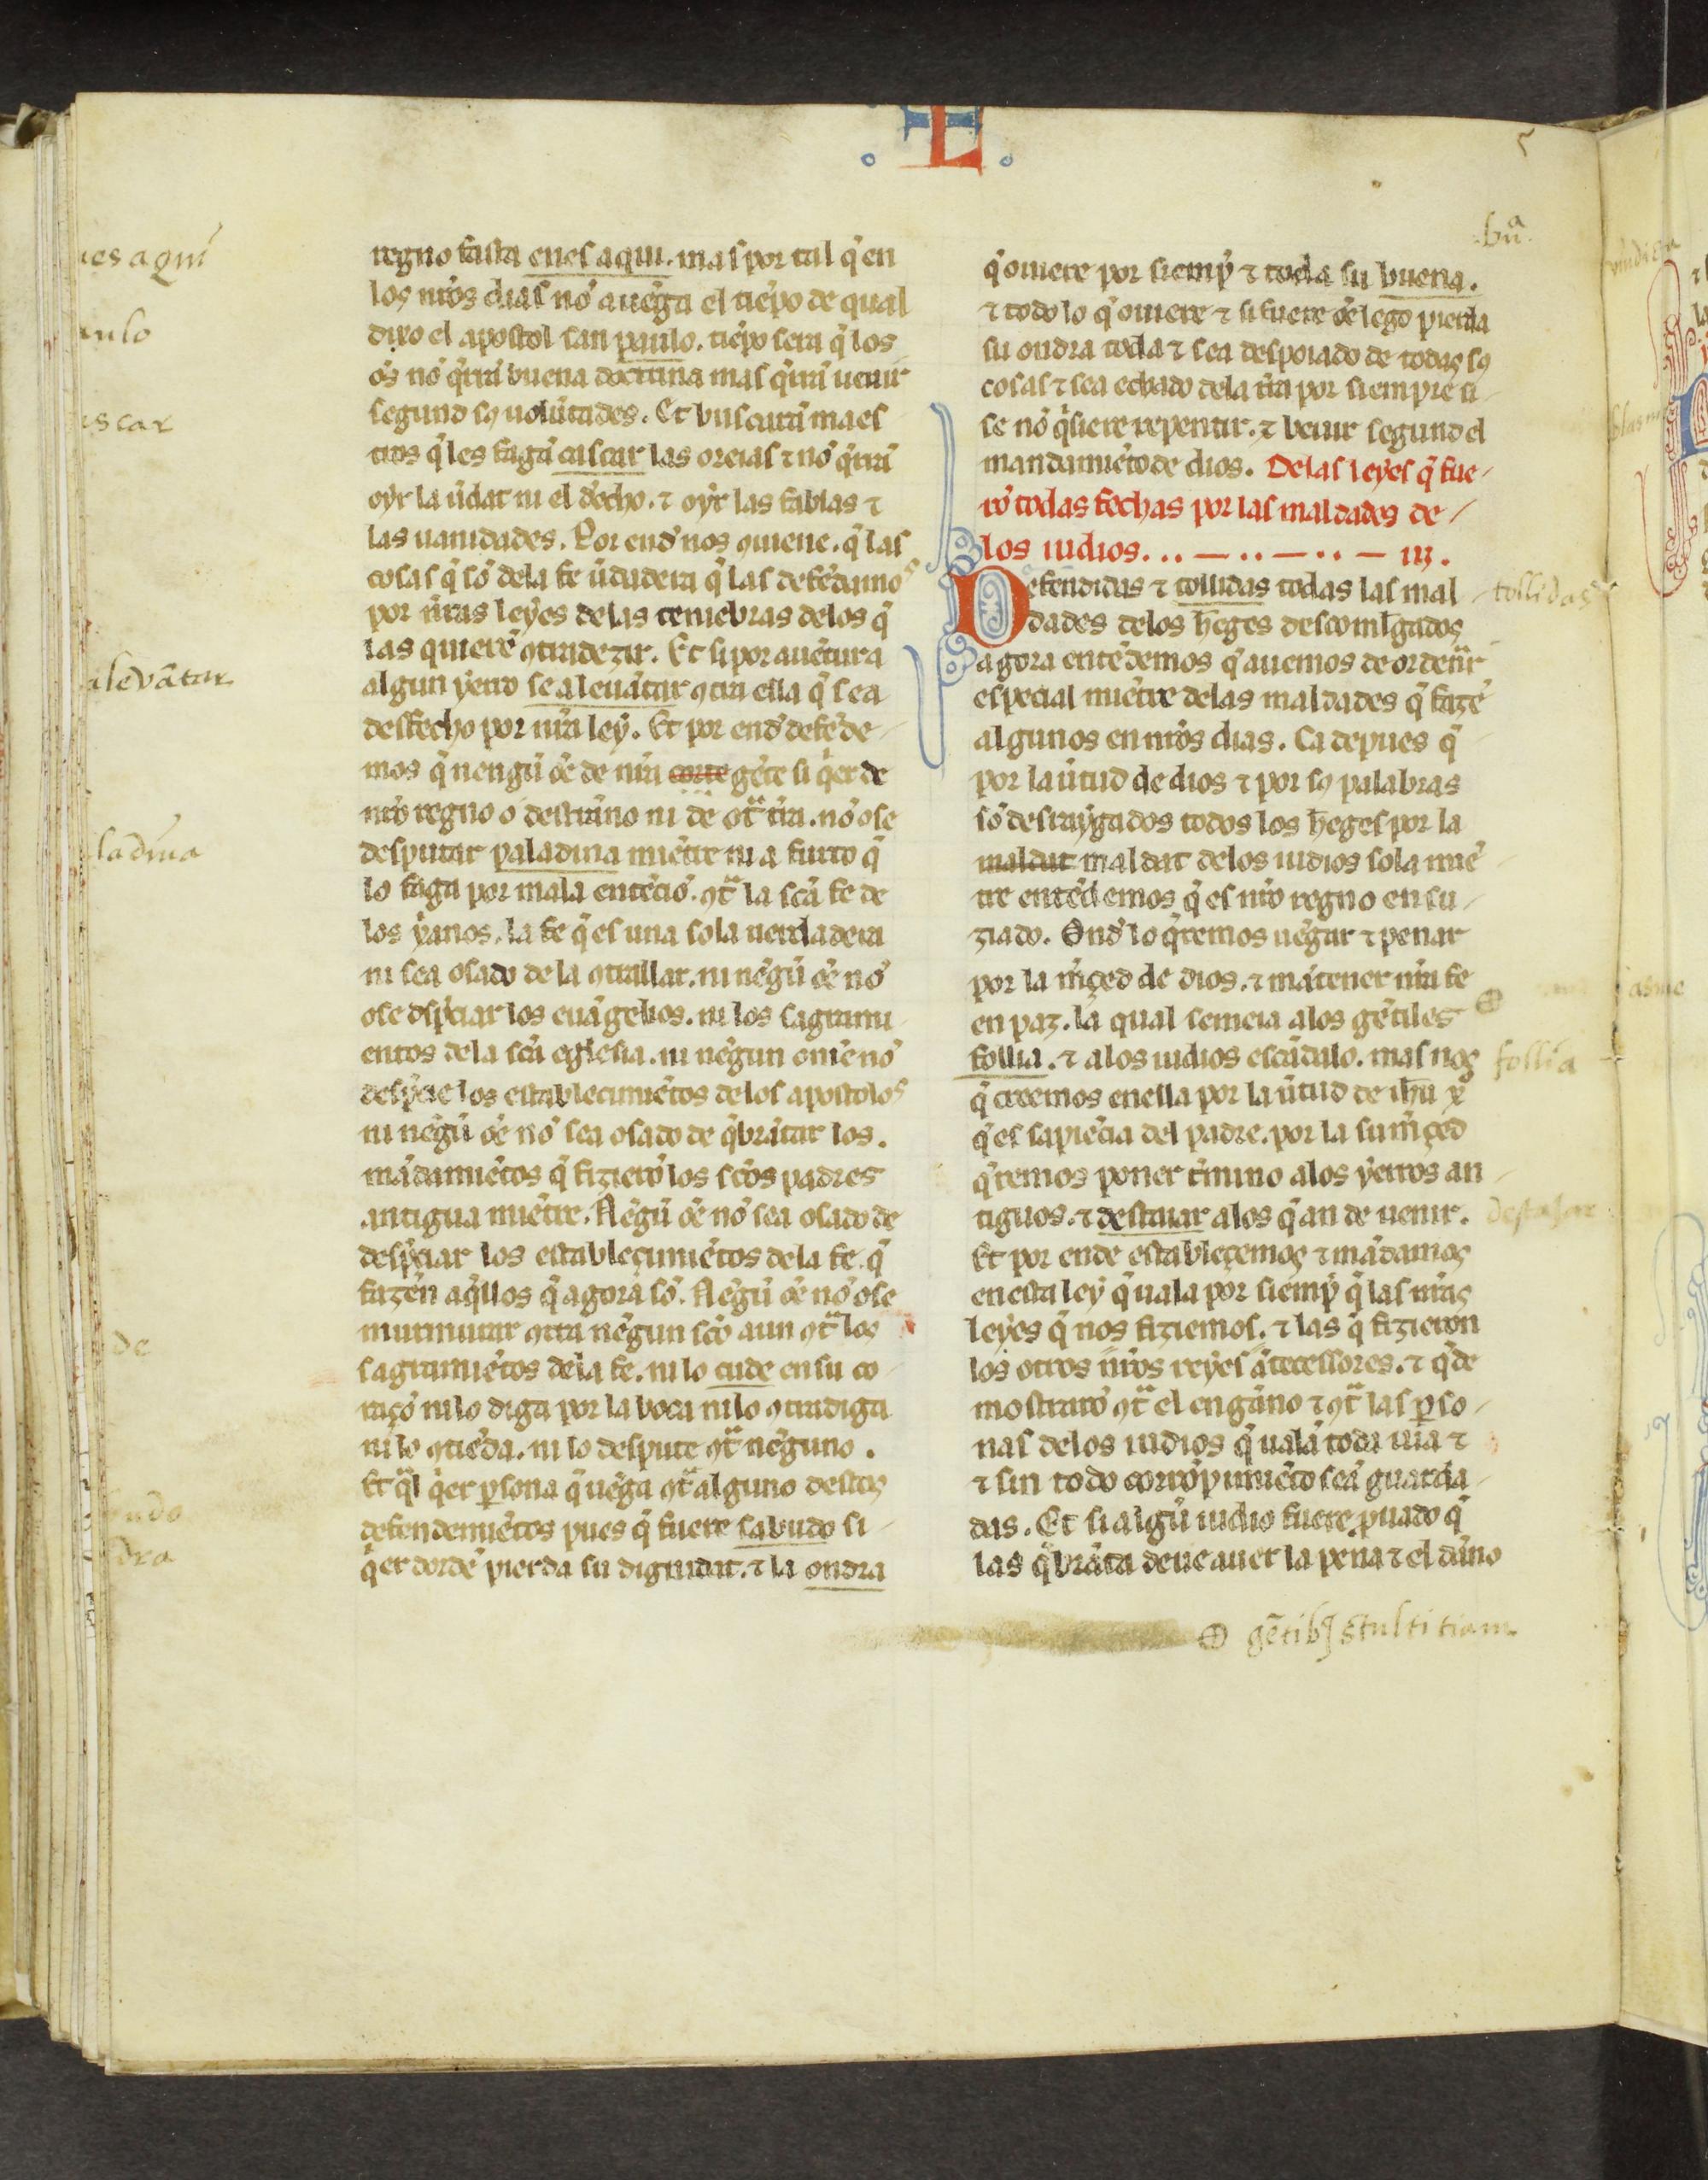 L
5
regno fasta enes aqui. mas por tal q̃ en
los nr̃os dias nõ auẽga el tiẽpo de qual
dixo el apostol san paulo. tiẽpo sera q̃ los
oẽs nõ q̃rrã buena doctrina mas q̃rrã uenir
segund sꝯ uolũtades. Et buscarã maes
tros q̃ les fagã cascar las oreias ⁊ nõ q̃rrã
oyr la ũdat ni el dẽcho. ⁊ oyr las fablas ⁊
las uanidades. Por end nos ꝯuiene. q̃ las
cosas q̃ sõ dela fe ũdadera q̃ las defẽdamos
por nr̃as leyes delas teniebras delos q̃
las quierẽ ꝯtradezir. Et si por auẽtura
algun yerro se aleuãtar ꝯtra ella q̃ sea
desfecho por nr̃a ley. Et por end defẽde
mos q̃ nengũ oẽ de nr̃a corte gẽte si q̃er de
nr̃o regno o destrãno ni de ot̃ tr̃ra. nõ ose
desputar paladina miẽtre ni a furto q̃
lo faga por mala entẽciõ. ꝯt̃ la scã fe de
los xp̃anos. la fe q̃ es una sola uerdadera
ni sea osado de la ꝯtrallar. ni nẽgũ oẽ nõ
ose desp̃ciar los euãgelios. ni los sagrami
entos dela scã eglesia. ni nẽgun omẽ nõ
desp̃cie los establecimiẽtos delos apostolos
ni nẽgũ oẽ nõ sea osado de q̃brãtar los.
mãdamiẽtos q̃ fizierõ los scõs padres
antigua miẽtre. Nẽgũ oẽ nõ sea osado de
desp̃ciar los estableçimiẽtos dela fe. q̃
fazen aq̃llos q̃ agora sõ. Nẽgũ oẽ nõ ose
murmurar ꝯtra nẽgun scõ aun ꝯt̃ los
sagramiẽtos dela fe. ni lo cude en su co
raçõ ni lo diga por la boca ni lo ꝯtradiga
ni lo ꝯtiẽda. ni lo despute ꝯt̃ nẽguno.
Et q̃l q̃er ꝑsona q̃ uẽga ꝯt̃ alguno destos
defendemiẽtos pues q̃ fuere sabudo si
q̃er dordẽ pierda su dignidat. ⁊ la ondra
q̃ ouiere por siemp̃ ⁊ toda su buena.
⁊ todo lo q̃ ouiere ⁊ si fuere oẽ lego pierda
su ondra toda ⁊ sea despoiado de todas sꝯ
cosas ⁊ sea echado dela tr̃ra por siempre si
se nõ q̃siere repentir. ⁊ beuir segund el
mandamiẽto de dios. De las leyes q̃ fue
rõ todas fechas por las maldades de
los iudios. iij.
Defendidas ⁊ tollidas todas las mal
dades delos hẽges descomlgados
agora entẽdemos q̃ auemos de ordenar
especial miẽtre delas maldades q̃ fazẽ
algunos en nr̃os dias. Ca depues q̃
por la ũtud de dios ⁊ por sꝯ palabras
sõ desraygados todos los hẽges por la
maldat maldat delos iudios sola miẽ
tre entẽdemos q̃ es nr̃o regno ensu
ziado. Ond lo q̃remos uẽgar ⁊ penar
por la m̃çed de dios. ⁊ mãtener nr̃a fe
en paz. la qual semeia alos gẽtiles
follia. ⁊ alos iudios escãdalo. mas nos
q̃ creemos enella por la ũtud de ihũ xp̃
q̃ es sapiẽcia del padre. por la su m̃çed
q̃remos poner t̃mino alos yerros an
tiguos. ⁊ destaiar alos q̃ an de uenir.
Et por ende establecemos ⁊ mãdamos
en esta ley q̃ uala por siemp̃ q̃ las nr̃as
leyes q̃ nos fiziemos. ⁊ las q̃ fizieron
los otros nr̃os reyes ãtecessores. ⁊ q̃ de
mostrarõ ꝯt̃ el engãno ⁊ ꝯt̃ las ꝑso
nas delos iudios q̃ ualã toda uia ⁊
⁊ sin todo corrõpimiẽto seã guarda
das. Et si algũ iudio fuere ꝓuado q̃
las q̃brãta deue auer la pena ⁊ el dãno
⊕ gẽtibꝫ stultitiam
es aqui
ulo
scar
aleuãtar
ladina
de
udo
dra
bũa
tollidas
follia
destajar